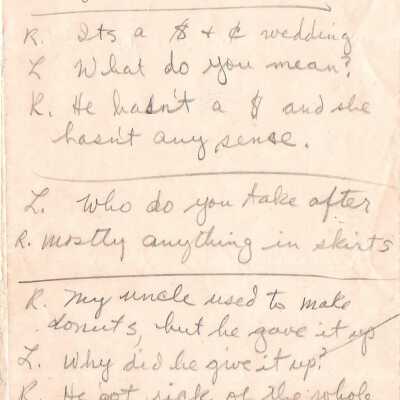 R. Its a $ + ¢ wedding
L What do you mean?
R. He hasn't a $ and she
hasn't any sense.
L. Who do you take after
R. Mostly anything in skirts
R. My uncle used to make
donuts, but he gave it up
L. Why did he give it up?
R. He got sick of the whole